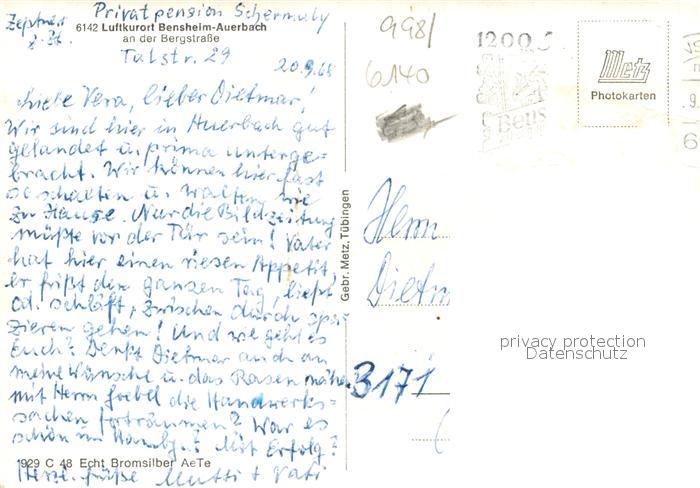 Privatpension Schermuly
z. Zt.
6142 Luftkurort Bensheim-Auerbach
an der Bergstraße
Talstr. 29
20.9.65
Liebe Vera, lieber Dietmar!
Wir sind hier in Auerbach gut
gelandet u. prima unterge-
bracht. Wir können hier fast
so schalten u. walten wie
zu Hause. Nur die Bildzeitung
müßte vor der Tür sein! Vater
hat hier einen riesen Appetit,
er frißt den ganzen Tag, liest
od. schläft, zwischen durch spa-
zieren gehen! Und wie geht es
Euch? Denkt Dietmar auch an
meine Wünsche u. das Rasen mähen
mit Herrn Goebel die Handwerks-
sachen forträumen? War es
schön in Hambg.? Mit Erfolg?
Herzl. Grüße Mutti + Vati
1929 C 48 Echt Bromsilber AeTe
Gebr. Metz, Tübingen
998/
6140
1200 J
Bens
Metz
Photokarten
Herrn
Dietm
3171
privacy protection
Datenschutz